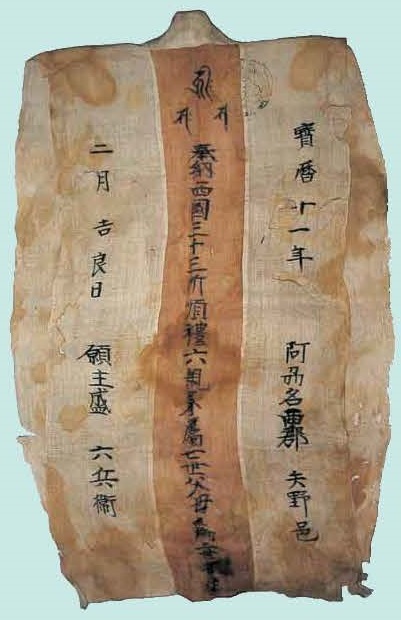 寳暦十一年 阿州名西郡 矢野邑
奉納西國三十三所順禮六親眷屬七世父母
二月吉良日 願主盛 六兵衛